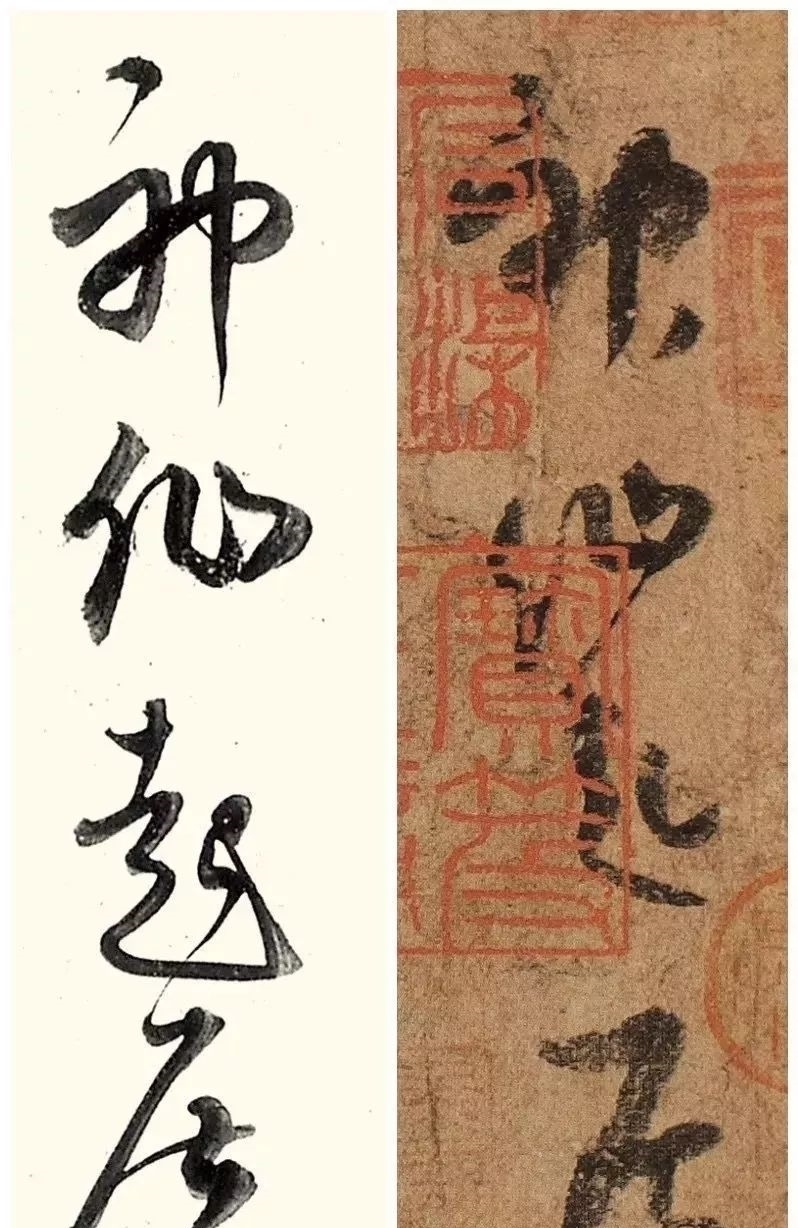 神仙起居
神仙起居